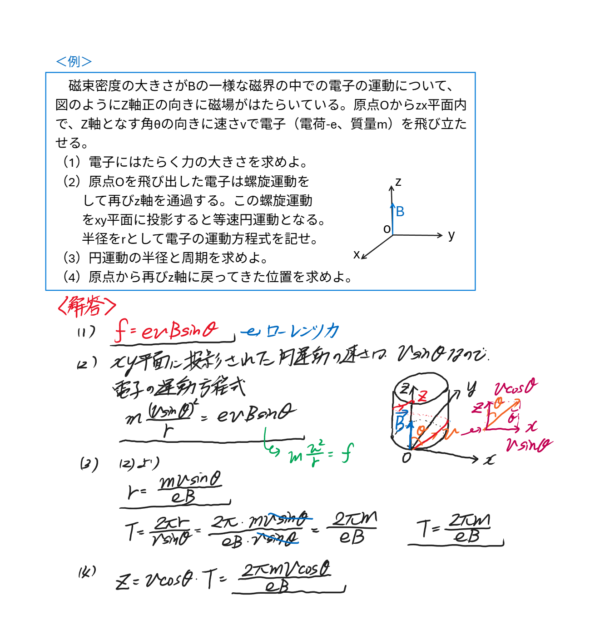 ＜例＞
磁束密度の大きさがBの一様な磁界の中での電子の運動について、
図のようにZ軸正の向きに磁場がはたらいている。原点Oからzx平面内
で、Z軸となす角θの向きに速さvで電子（電荷-e、質量m）を飛び立た
せる。
（1）電子にはたらく力の大きさを求めよ。
（2）原点Oを飛び出した電子は螺旋運動を
して再びz軸を通過する。この螺旋運動
をxy平面に投影すると等速円運動となる。
半径をrとして電子の運動方程式を記せ。
（3）円運動の半径と周期を求めよ。
（4）原点から再びz軸に戻ってきた位置を求めよ。
z
B
o
y
x
＜解答＞
(1) f=evBsinθ ← ローレンツ力
(2) xy平面に投影された円運動の速さは vsinθなので、
電子の運動方程式
m (vsinθ)²/r = evBsinθ
→ m v²/r = f
z y vcosθ
z θ
B θ v
θ v x
O x vsinθ
(3) (2)より
r = mvsinθ/eB
T = 2πr/vsinθ = 2π・mvsinθ/eB・vsinθ = 2πm/eB T = 2πm/eB
(4) Z = vcosθ・T = 2πmvcosθ/eB